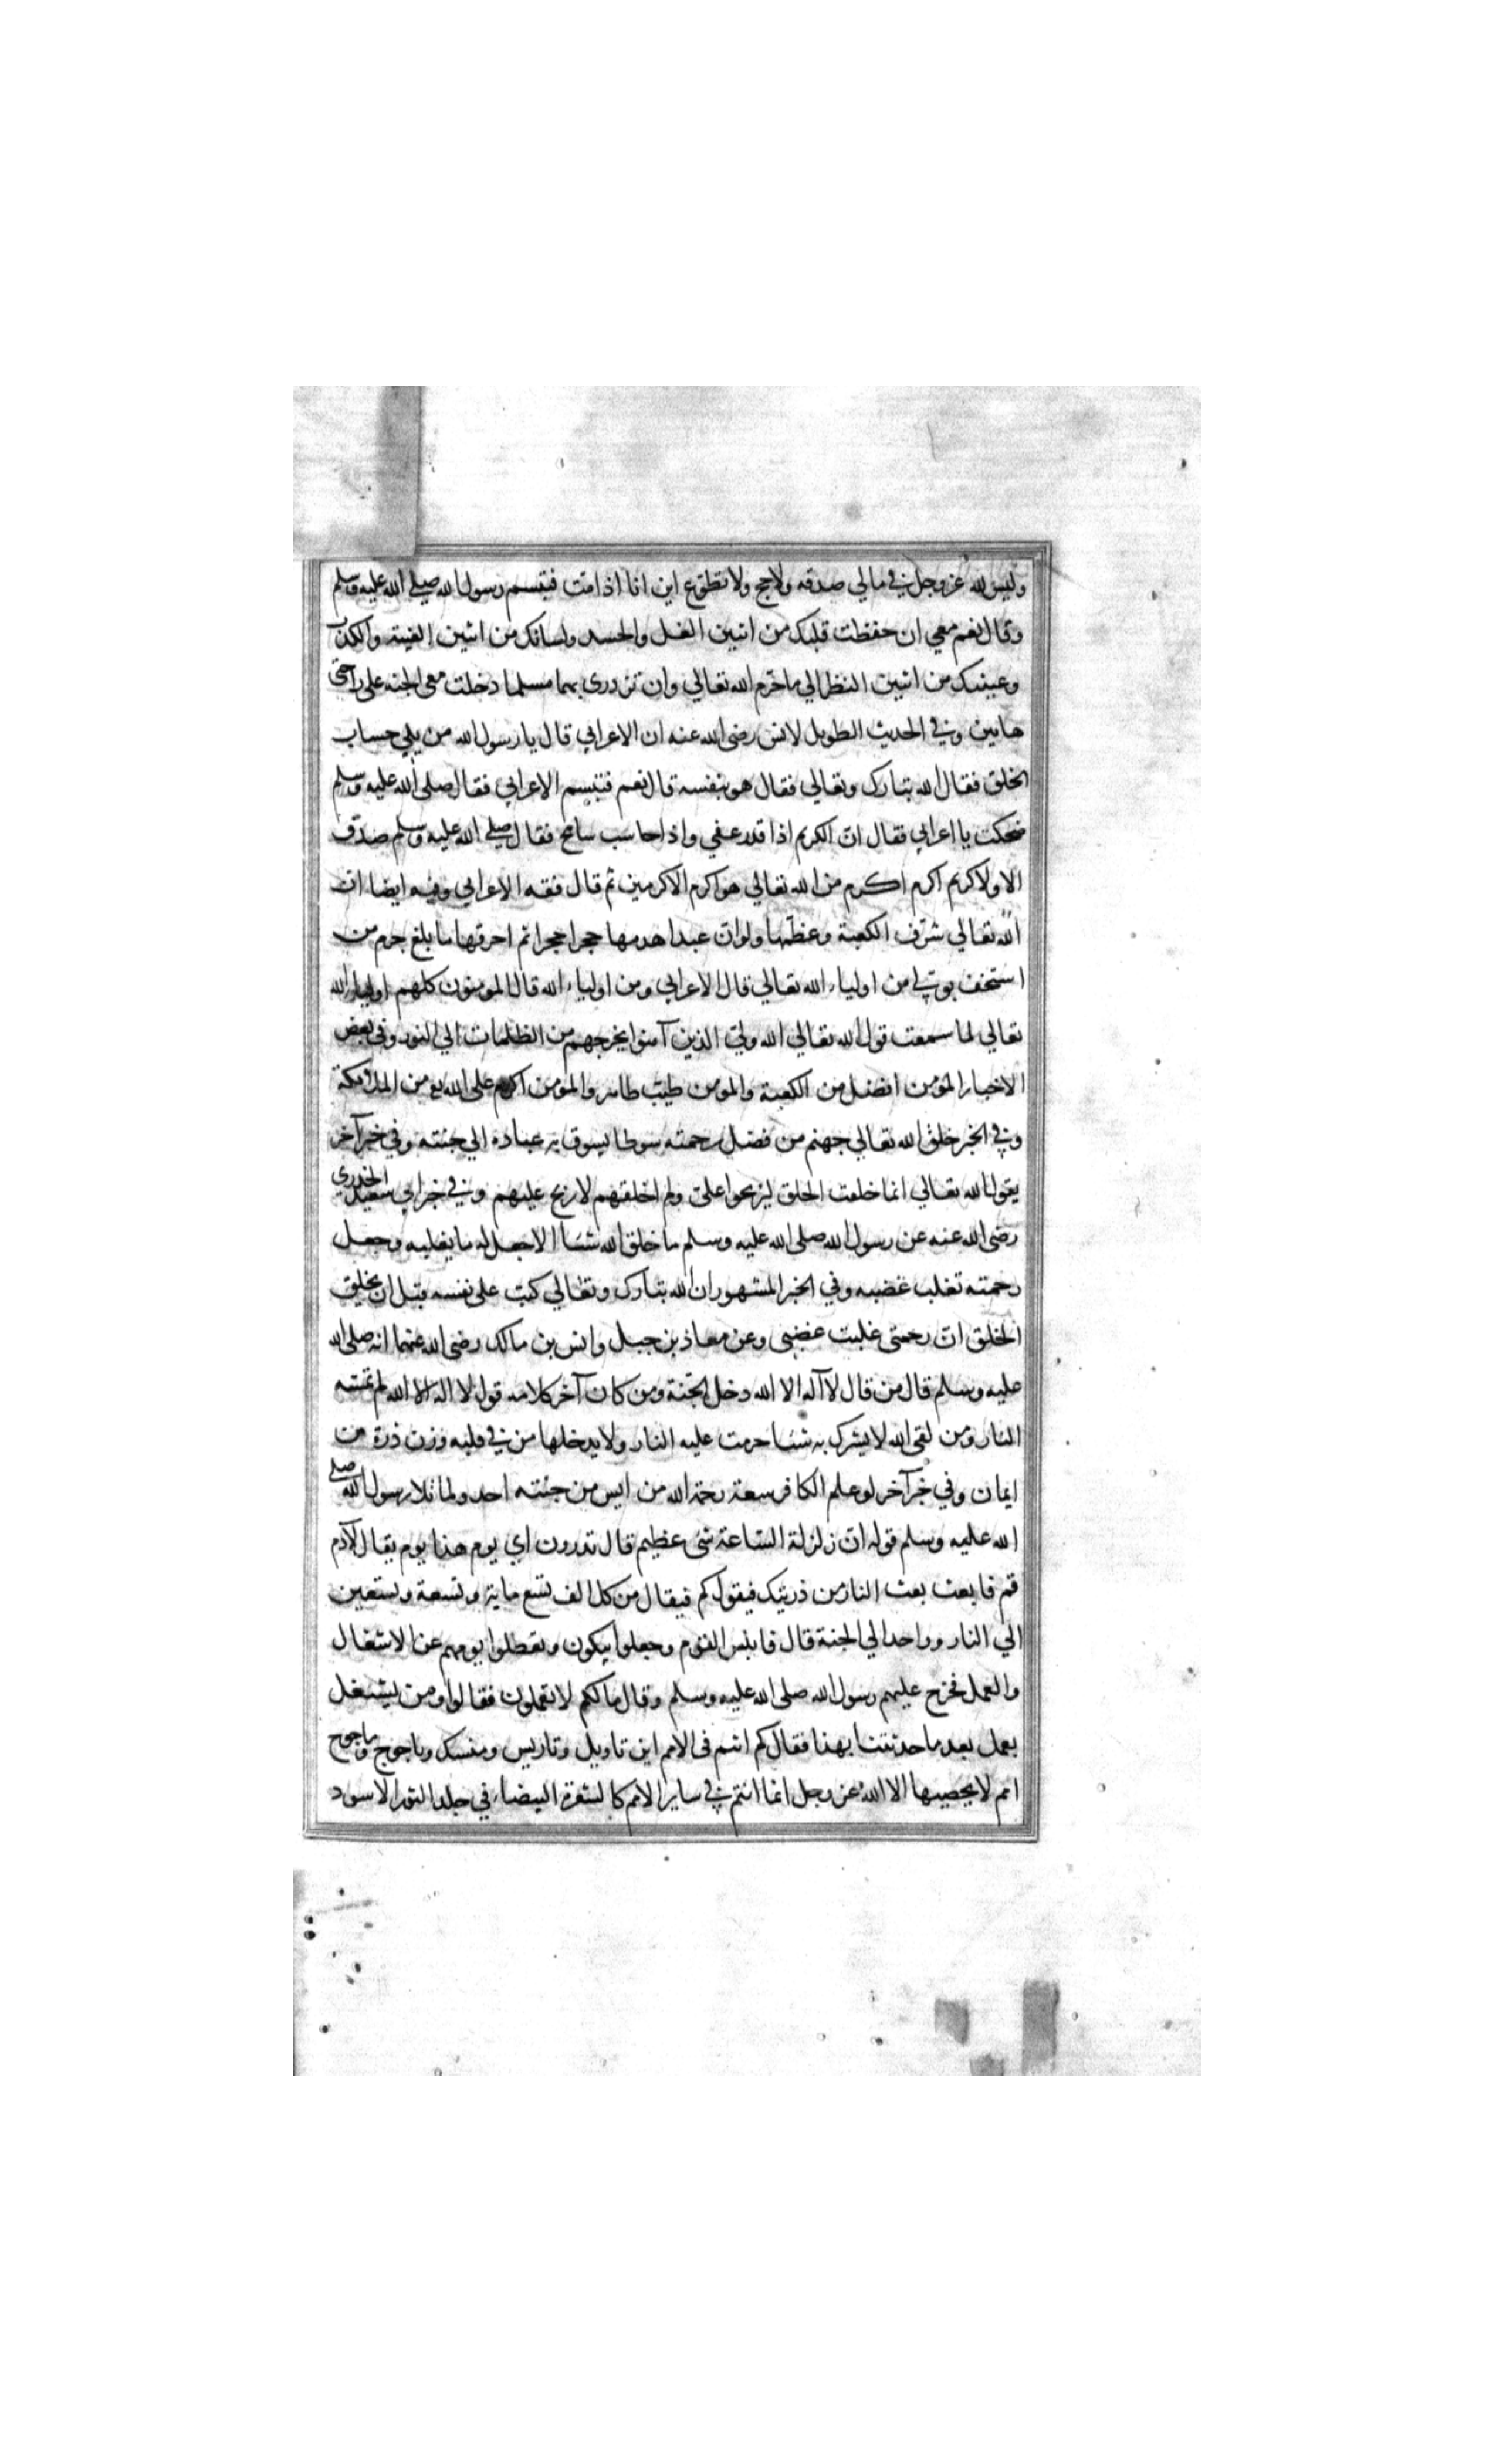 وليس لله عز وجل في مالي صدقه ولا حج ولا تطوع اين انا اذا مت فتبسم رسول الله صلى الله عليه وسلم
وقال نعم معي ان حفظت قلبك من اثنين الغل والحسد ولسانك من اثنين الغيبة والكذب
وعينيك من اثنين النظر الي ما حرم الله تعالي وان تزدري بهما مسلما دخلت معي الجنه على راحتي
هاتين وفي الحديث الطويل لانس رضى الله عنه ان الاعرابي قال يا رسول الله من يلي حساب
الخلق فقال الله تبارك وتعالي فقال هو بنفسه قال نعم فتبسم الاعرابي فقال صلى الله عليه وسلم
ضحكت يا اعرابي فقال ان الكريم اذا قدر عفي واذا حاسب سامح فقال صلى الله عليه وسلم صدق
الا ولا كريم اكرم من الله تعالي هو اكرم الاكرمين ثم قال فقه الاعرابي وفيه ايضا ان
الله تعالي شرف الكعبة وعظمها ولو ان عبدا هدمها حجرا حجرا ثم احرقها ما بلغ جرم من
استخف بولي من اولياء الله تعالي قال الاعرابي ومن اولياء الله قال المومنون كلهم اولياء الله
تعالي لما سمعت قول الله تعالي الله ولي الذين آمنوا يخرجهم من الظلمات الي النور وفي بعض
الاخبار المؤمن افضل من الكعبة والمومن طيب طاهر والمؤمن اكرم على الله تع من الملائكة
وفي الخبر خلق الله تعالي جهنم من فضل رحمته سوطا يسوق به عباده الي جنته وفي خبر آخر
يقول الله تعالي انما خلقت الخلق ليربحوا علي ولم اخلقهم لاربح عليهم وفي خبر ابي سعيد الخدري
رضى الله عنه عن رسول الله صلى الله عليه وسلم ما خلق الله شئا الا جعل له ما يغلبه وجعل
رحمته تغلب غضبه وفي الخبر المشهور ان الله تبارك وتعالي كتب على نفسه قبل ان يخلق
الخلق ان رحمتي غلبت غضبي وعن معاذ بن جبل وانس بن مالك رضى الله عنهما انه صلى الله
عليه وسلم قال من قال لا آله الا الله دخل الجنة ومن كان آخر كلامه قول لا اله الا الله لم تمسه
النار ومن لقى الله لا يشرك به شئا حرمت عليه النار ولا يدخلها من في قلبه وزن ذرة من
ايمان وفي خبر آخر لو علم الكافر سعة رحمة الله من ايس من جنته احد ولما تلا رسول الله صلى
الله عليه وسلم قوله ان زلزلة الساعة شى عظيم قال تدرون اي يوم هذا يوم يقال لآدم
قم فابعث بعث النار من ذريتك فيقول كم فيقال من كل الف تسع ماية وتسعة وتسعين
الي النار وواحدا الي الجنة قال فابلس القوم وجعلوا يبكون وتعطلوا يومهم عن الاشغال
والعمل فخرج عليهم رسول الله صلى الله عليه وسلم وقال مالكم لا تعملون فقالوا ومن يشتغل
بعمل بعد ما حدثتنا بهذا فقال كم انتم في الامم اين تاويل وتاريس ومنسك وياجوج وماجوج
امم لا يحصيها الا الله عز وجل انما انتم في ساير الامم كالشعرة البيضاء في جلد الثور الاسود